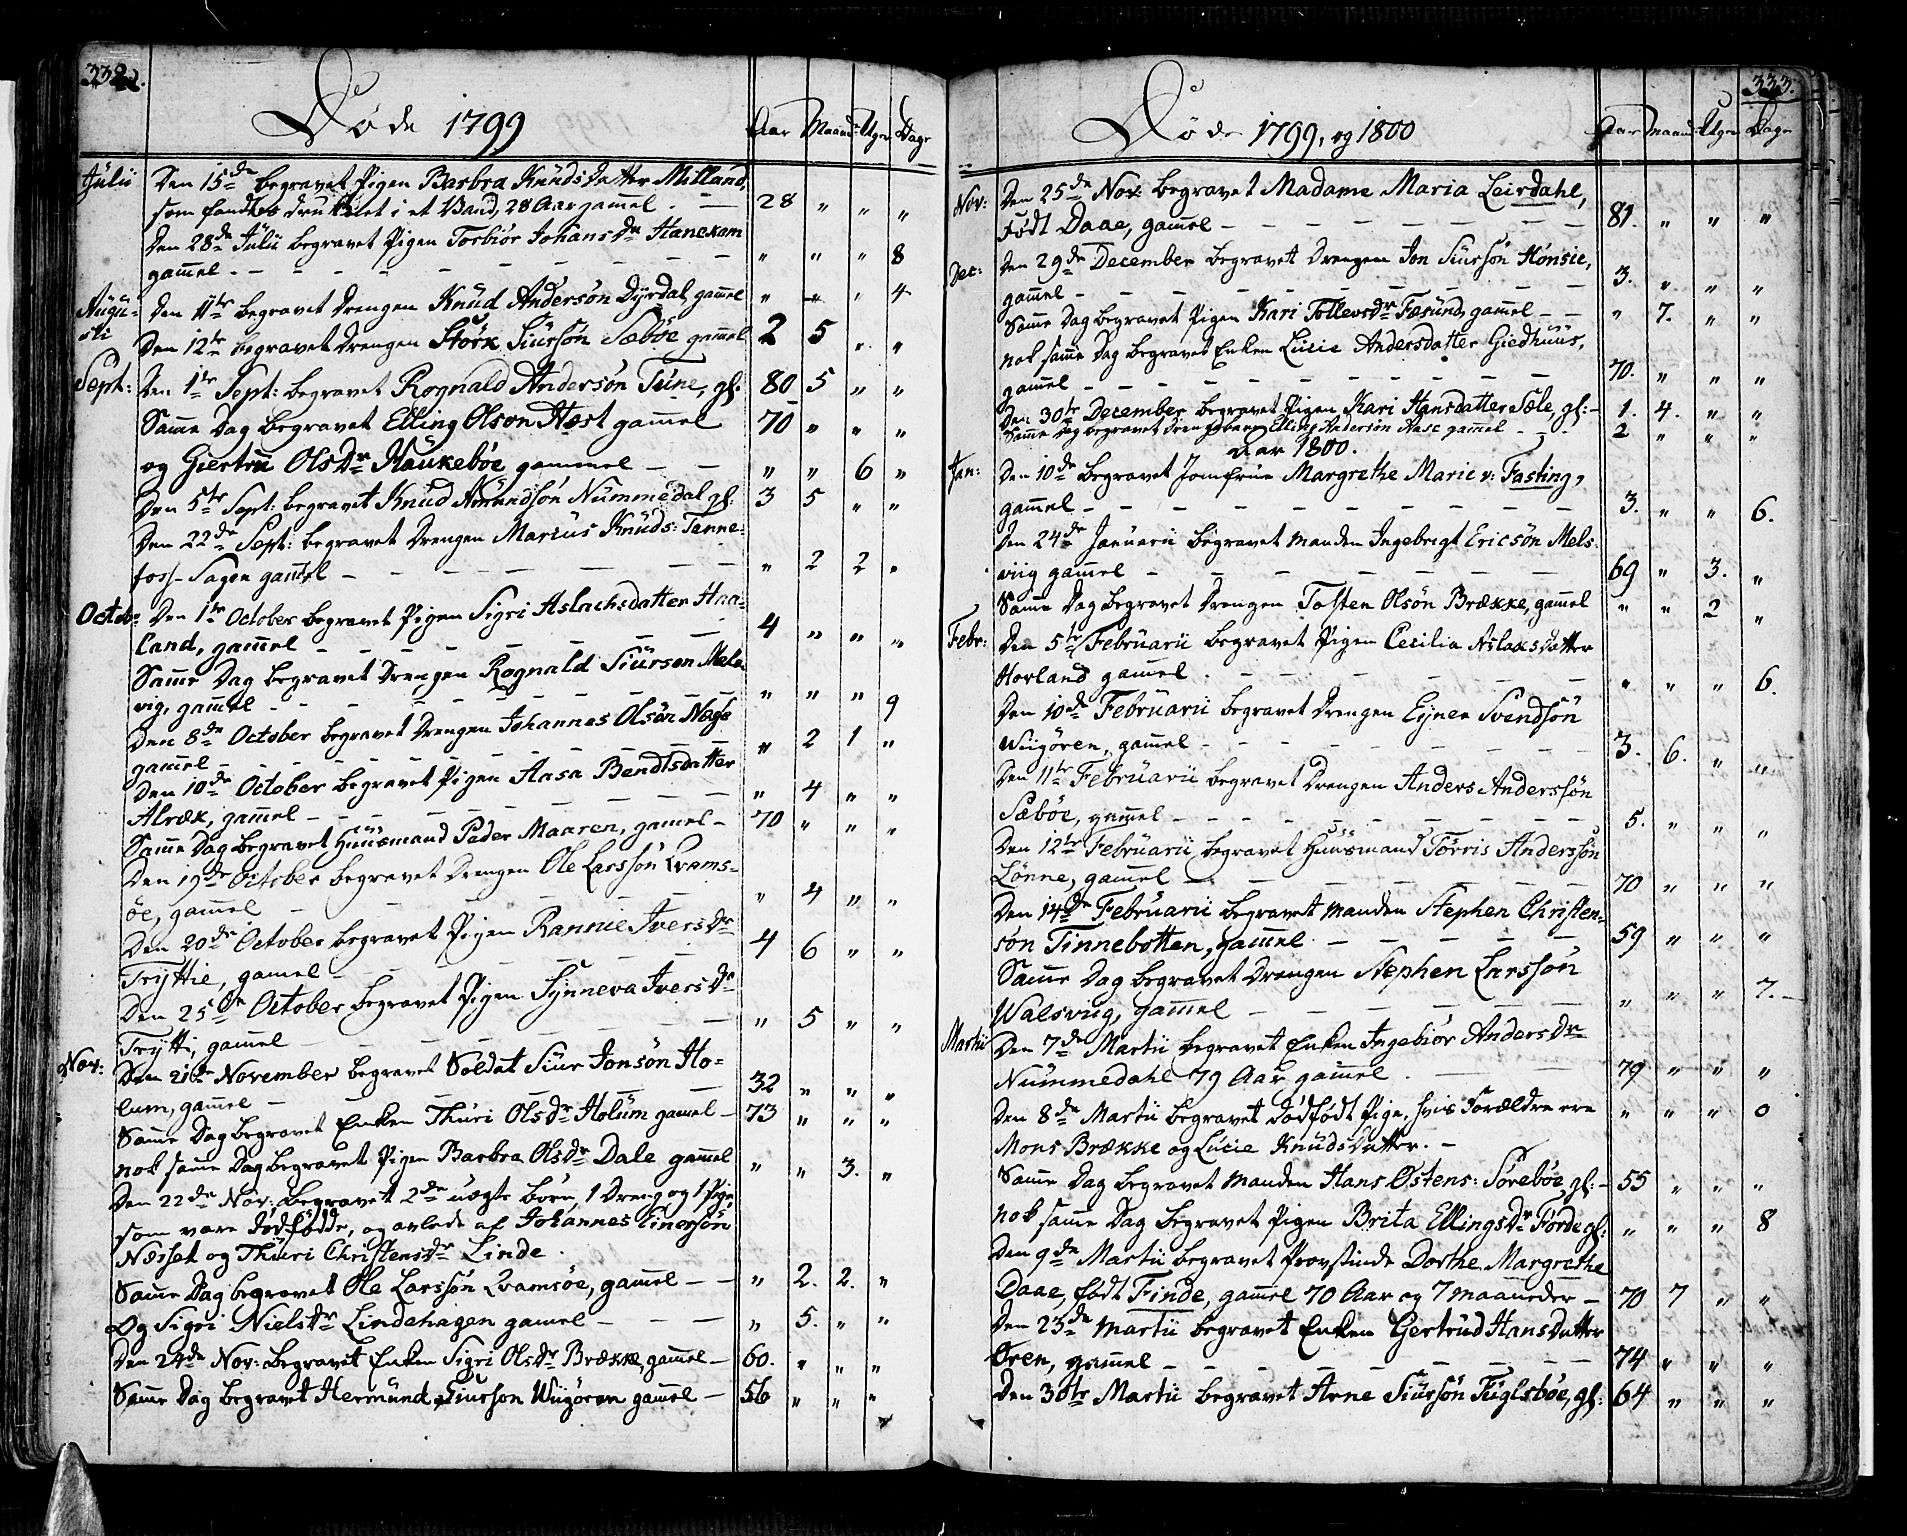 332.
Døde 1799
Aar Maand Uger Dage
Julii Den 15de begravet Pigen Barbra Knudsdatter Mitland,
som fandtes druknet i et Vand, 28 Aar gamel. — 28 " " "
Den 28de Julii begravet Pigen Torbiør Johansdr Hanekam
gamel. — — — " " " 8
Augusti Den 11te begravet Drengen Knud Andersøn Dyrdal, gamel " " " 4
Den 12te begravet Drengen Størk Siursøn Sæbøe gamel 2 5 " "
Sept: Den 1te Sept: begravet Rognald Andersøn Tune, gl: 80 5 " "
Samme Dag begravet Elling Olsøn Hæst gamel 70 " " "
og Giertru Olsdr Haukebøe gammel — — " " 6 "
Den 5te Sept: begravet Knud Amundsøn Nummedal gl: 3 5 " "
Den 22de Sept: begravet Drengen Marius Knuds: Tenne-
foss-Sagen gamel — — — " 2 2 "
Octob: Den 1te October begravet Pigen Sigri Aslachsdatter Haa-
land, gamel — — — 4 " " "
Samme Dag begravet Drengen Rognald Siursøn Mels-
vig, gamel — — — " " " 9
Den 8de October begravet Drengen Johannes Olsøn Næss
gamel — — — " 2 1 "
Den 10de October begravet Pigen Aasa Bendtsdatter
Alræk, gamel — — — " 4 " "
Samme Dag begravet Huusmand Peder Maaren, gamel — 70 " " "
Den 19de October begravet Drengen Ole Larssøn Qvams-
øe, gamel — — — " 4 " "
Den 20de October begravet Pigen Rannie Iversdr
Tryttie, gamel — — — 4 6 " "
Den 25de October begravet Pigen Synneva Iversdr
Trytti, gamel — — — " 5 " "
Nov: Den 21de November begravet Soldat Siur Jonsøn Ho-
lum, gamel — — — 32 " " "
Samme Dag begravet Enken Thuri Olsdr Holum gamel — 73 " " "
nok samme Dag begravet Pigen Barbra Olsdr Dale gamel " " 3. "
Den 22de Nov: begravet 2de uægte børn, 1 Dreng og 1 Pige,
som vare Dødfødde, og avlede af Johannes Einersøn
Næsset og Thuri Christensdr Linde.
Samme Dag begravet Ole Larssøn Qvamsøe, gamel — — " 2. 2. "
Og Sigri Nielsdr Lindehagen gamel — — — " 5. " "
Den 24de Nov: begravet Enken Sigri Olsdr Brække, gamel — 60. " " "
Samme Dag begravet Hermund Siursøn Wiigøren gamel — 56 " " "
333.
Døde 1799, og 1800
Aar Maand Uger Dage
Nov: Den 25de Nov. begravet Madame Maria Leirdahl,
Født Daae, gamel — — — 81. " " "
Dec: Den 29de December begravet Drengen Jon Siursøn Hønsie,
gamel — — — 3. " " "
Samme Dag begravet Pigen Kari Tollevsdr Fæsund, gamel — — " 7. " "
nok samme Dag begravet Enken Lucie Andersdatter Giedhuus,
gamel — — — 70. " " "
Den 30te December begravet Pigen Kari Hansdatter Sæle, gl: — 1. 4. " "
Samme Dag begravet Drengebarn Elling Andersøn Aase gammel — — 2 " " "
Aar 1800.
Jan: Den 10de begravet Jomfrue Margrethe Marie v: Fasting,
gamel — — — 3. " " 6.
Den 24de Januarii begravet Manden Ingebrigt Ericsøn Mels-
viig gamel — — — 69 " 3. "
Samme Dag begravet Drengen Tosten Olsøn Brække, gamel " " 2 "
Febr: Den 5te Februarii begravet Pigen Cecilia Aslaksdatter
Hovland gamel. — — — " " " 6.
Den 10de Februarii begravet Drengen Eyner Svendsøn
Wiigøren, gamel — — — 3. 6. " "
Den 11te Februarii begravet Drengen Anders Anderssøn
Sæbøe, gamel — — — 5. " " "
Den 12te Februarii begravet Huusmand Tørris Anderssøn
Lønne, gamel — — — 70 " " "
Den 14de Februarii begravet Manden Stephen Christen-
søn Finnebotten, gamel — — — 59 " " "
Samme Dag begravet Drengen Stephen Larssøn
Walsviig, gamel — — — " " " 7.
Martii Den 7de Martii begravet Enken Ingebiør Andersdr
Nummedahl 79 Aar gamel. — — 79 " " "
Den 8de Martii begravet Dødfødt Pige, hvis Forældre ere " " " 0
Mons Brække og Lucie Knudsdatter. —
Samme Dag begravet Manden Hans Østens: Sørebøe, gl: — 55 " " "
nok samme Dag begravet Pigen Brita Ellingsdr Førde gl: " " " 8
Den 9de Martii begravet Provstinde Dorthe Margrethe
Daae, født Finde, gamel 70 Aar og 7 maaneder — 70 7 " "
Den 23de Martii begravet Enken Gertrud Hansdatter
Øren, gamel — — — 74 " " "
Den 30te Martii begravet Arne Siursøn Fuglsbøe, gl: 64 " " "